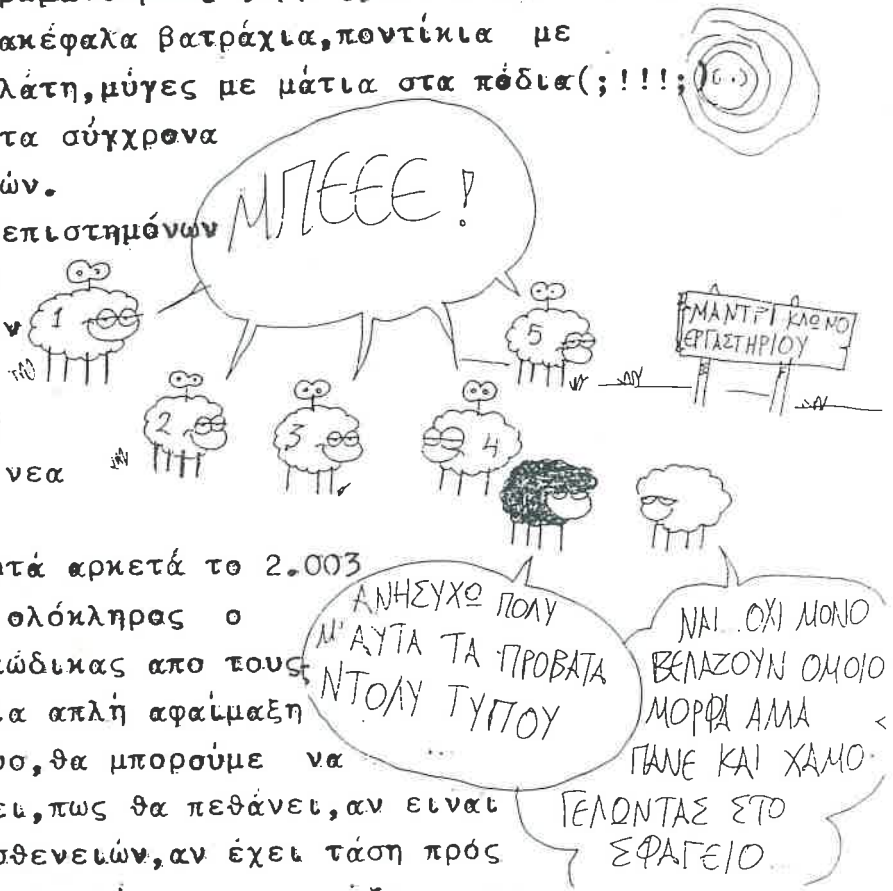 ακέφαλα βατράχια,ποντίκια με
λάτη,μύγες με μάτια στα πόδια(;!!!;)
τα σύγχρονα
ών.
επιστημόνων
ν
νεα
τά αρκετά το 2.003
ολόκληρος ο
ώδικας απο τους
ια απλή αφαίμαξη
υσ,θα μπορούμε να
ει,πως θα πεθάνει,αν ειναι
σθενειών,αν έχει τάση πρός
ΜΠΕΕΕ!
1
2
3
4
5
ΜΑΝΤΡΙ ΚΛΩΝΟ
ΕΡΓΑΣΤΗΡΙΟΥ
ΑΝΗΣΥΧΩ ΠΟΛΥ
Μ' ΑΥΤΑ ΤΑ ΠΡΟΒΑΤΑ
ΝΤΟΛΥ ΤΥΠΟΥ
...
ΝΑΙ ..ΟΧΙ ΜΟΝΟ
ΒΕΛΑΖΟΥΝ ΟΜΟΙΟ
ΜΟΡΦΑ ΑΛΛΑ
ΠΑΝΕ ΚΑΙ ΧΑΜΟ
ΓΕΛΩΝΤΑΣ ΣΤΟ
ΣΦΑΓΕΙΟ